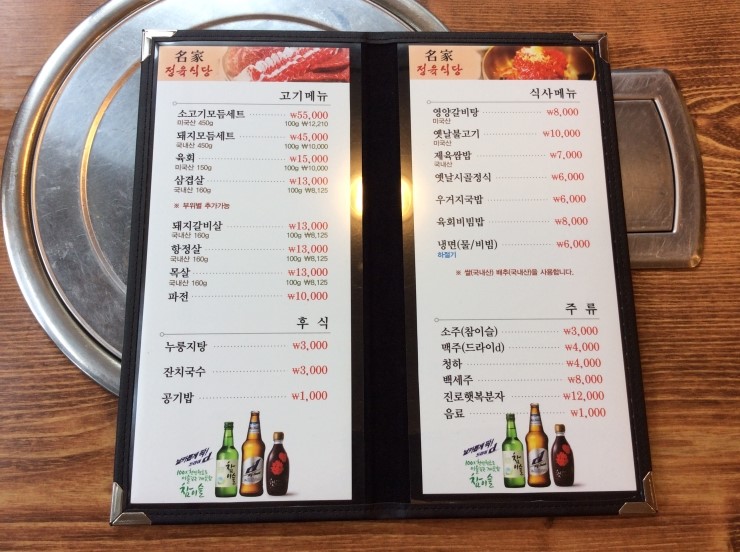 名家
정육식당
고기메뉴
소고기모듬세트 ₩55,000
미국산 450g 100g ₩12,210
돼지모듬세트 ₩45,000
국내산 450g 100g ₩10,000
육회 ₩15,000
미국산 150g 100g ₩10,000
삼겹살 ₩13,000
국내산 160g 100g ₩8,125
※ 부위별 추가가능
돼지갈비살 ₩13,000
국내산 160g 100g ₩8,125
항정살 ₩13,000
국내산 160g 100g ₩8,125
목살 ₩13,000
국내산 160g 100g ₩8,125
파전 ₩10,000
후 식
누룽지탕 ₩3,000
잔치국수 ₩3,000
공기밥 ₩1,000
참이슬
名家
정육식당
식사메뉴
영양갈비탕 ₩8,000
미국산
옛날불고기 ₩10,000
미국산
제육쌈밥 ₩7,000
국내산
옛날시골정식 ₩6,000
우거지국밥 ₩6,000
육회비빔밥 ₩8,000
냉면(물/비빔) ₩6,000
하절기
※ 쌀(국내산) 배추(국내산)을 사용합니다.
주 류
소주(참이슬) ₩3,000
맥주(드라이d) ₩4,000
청하 ₩4,000
백세주 ₩8,000
진로햇복분자 ₩12,000
음료 ₩1,000
참이슬